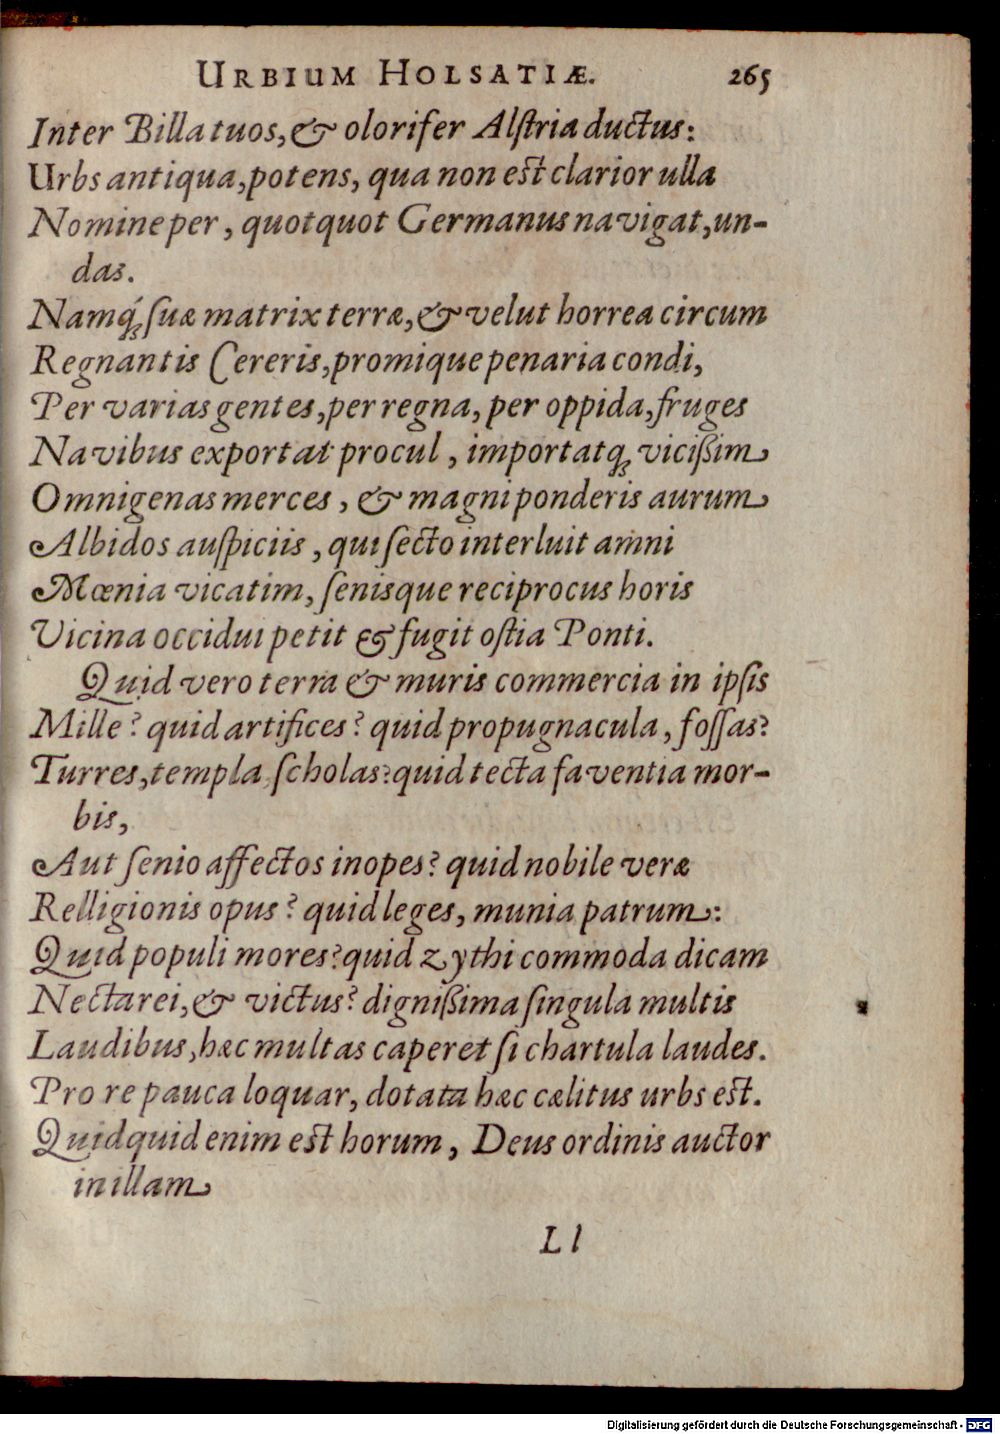 URBIUM HOLSATIÆ. 265
Inter Billa tuos, & olorifer Alſtria ductus:
Urbs antiqua, potens, qua non eſt clarior ulla
Nomine per, quotquot Germanus navigat, un-
das.
Namq́ꝫ ſuæ matrix terræ, & velut horrea circum
Regnantis Cereris, promique penaria condi,
Per varias gentes, per regna, per oppida, fruges
Navibus exportat procul, importatqꝫ viciſſim
Omnigenas merces, & magni ponderis aurum
Albidos auſpiciis, qui ſecto interluit amni
Mœnia vicatim, ſenisque reciprocus horis
Vicina occidui petit & fugit oſtia Ponti.
Quid vero terra & muris commercia in ipſis
Mille? quid artifices? quid propugnacula, foſſas?
Turres, templa ſcholas? quid tecta faventia mor-
bis,
Aut ſenio affectos inopes? quid nobile veræ
Relligionis opus? quid leges, munia patrum:
Quid populi mores? quid zythi commoda dicam
Nectarei, & victus? digniſſima ſingula multis
Laudibus, hæc multas caperet ſi chartula laudes.
Pro re pauca loquar, dotata hæc cælitus urbs eſt.
Quidquid enim eſt horum, Deus ordinis auctor
in illam
Ll
Digitalisierung gefördert durch die Deutsche Forschungsgemeinschaft - DFG